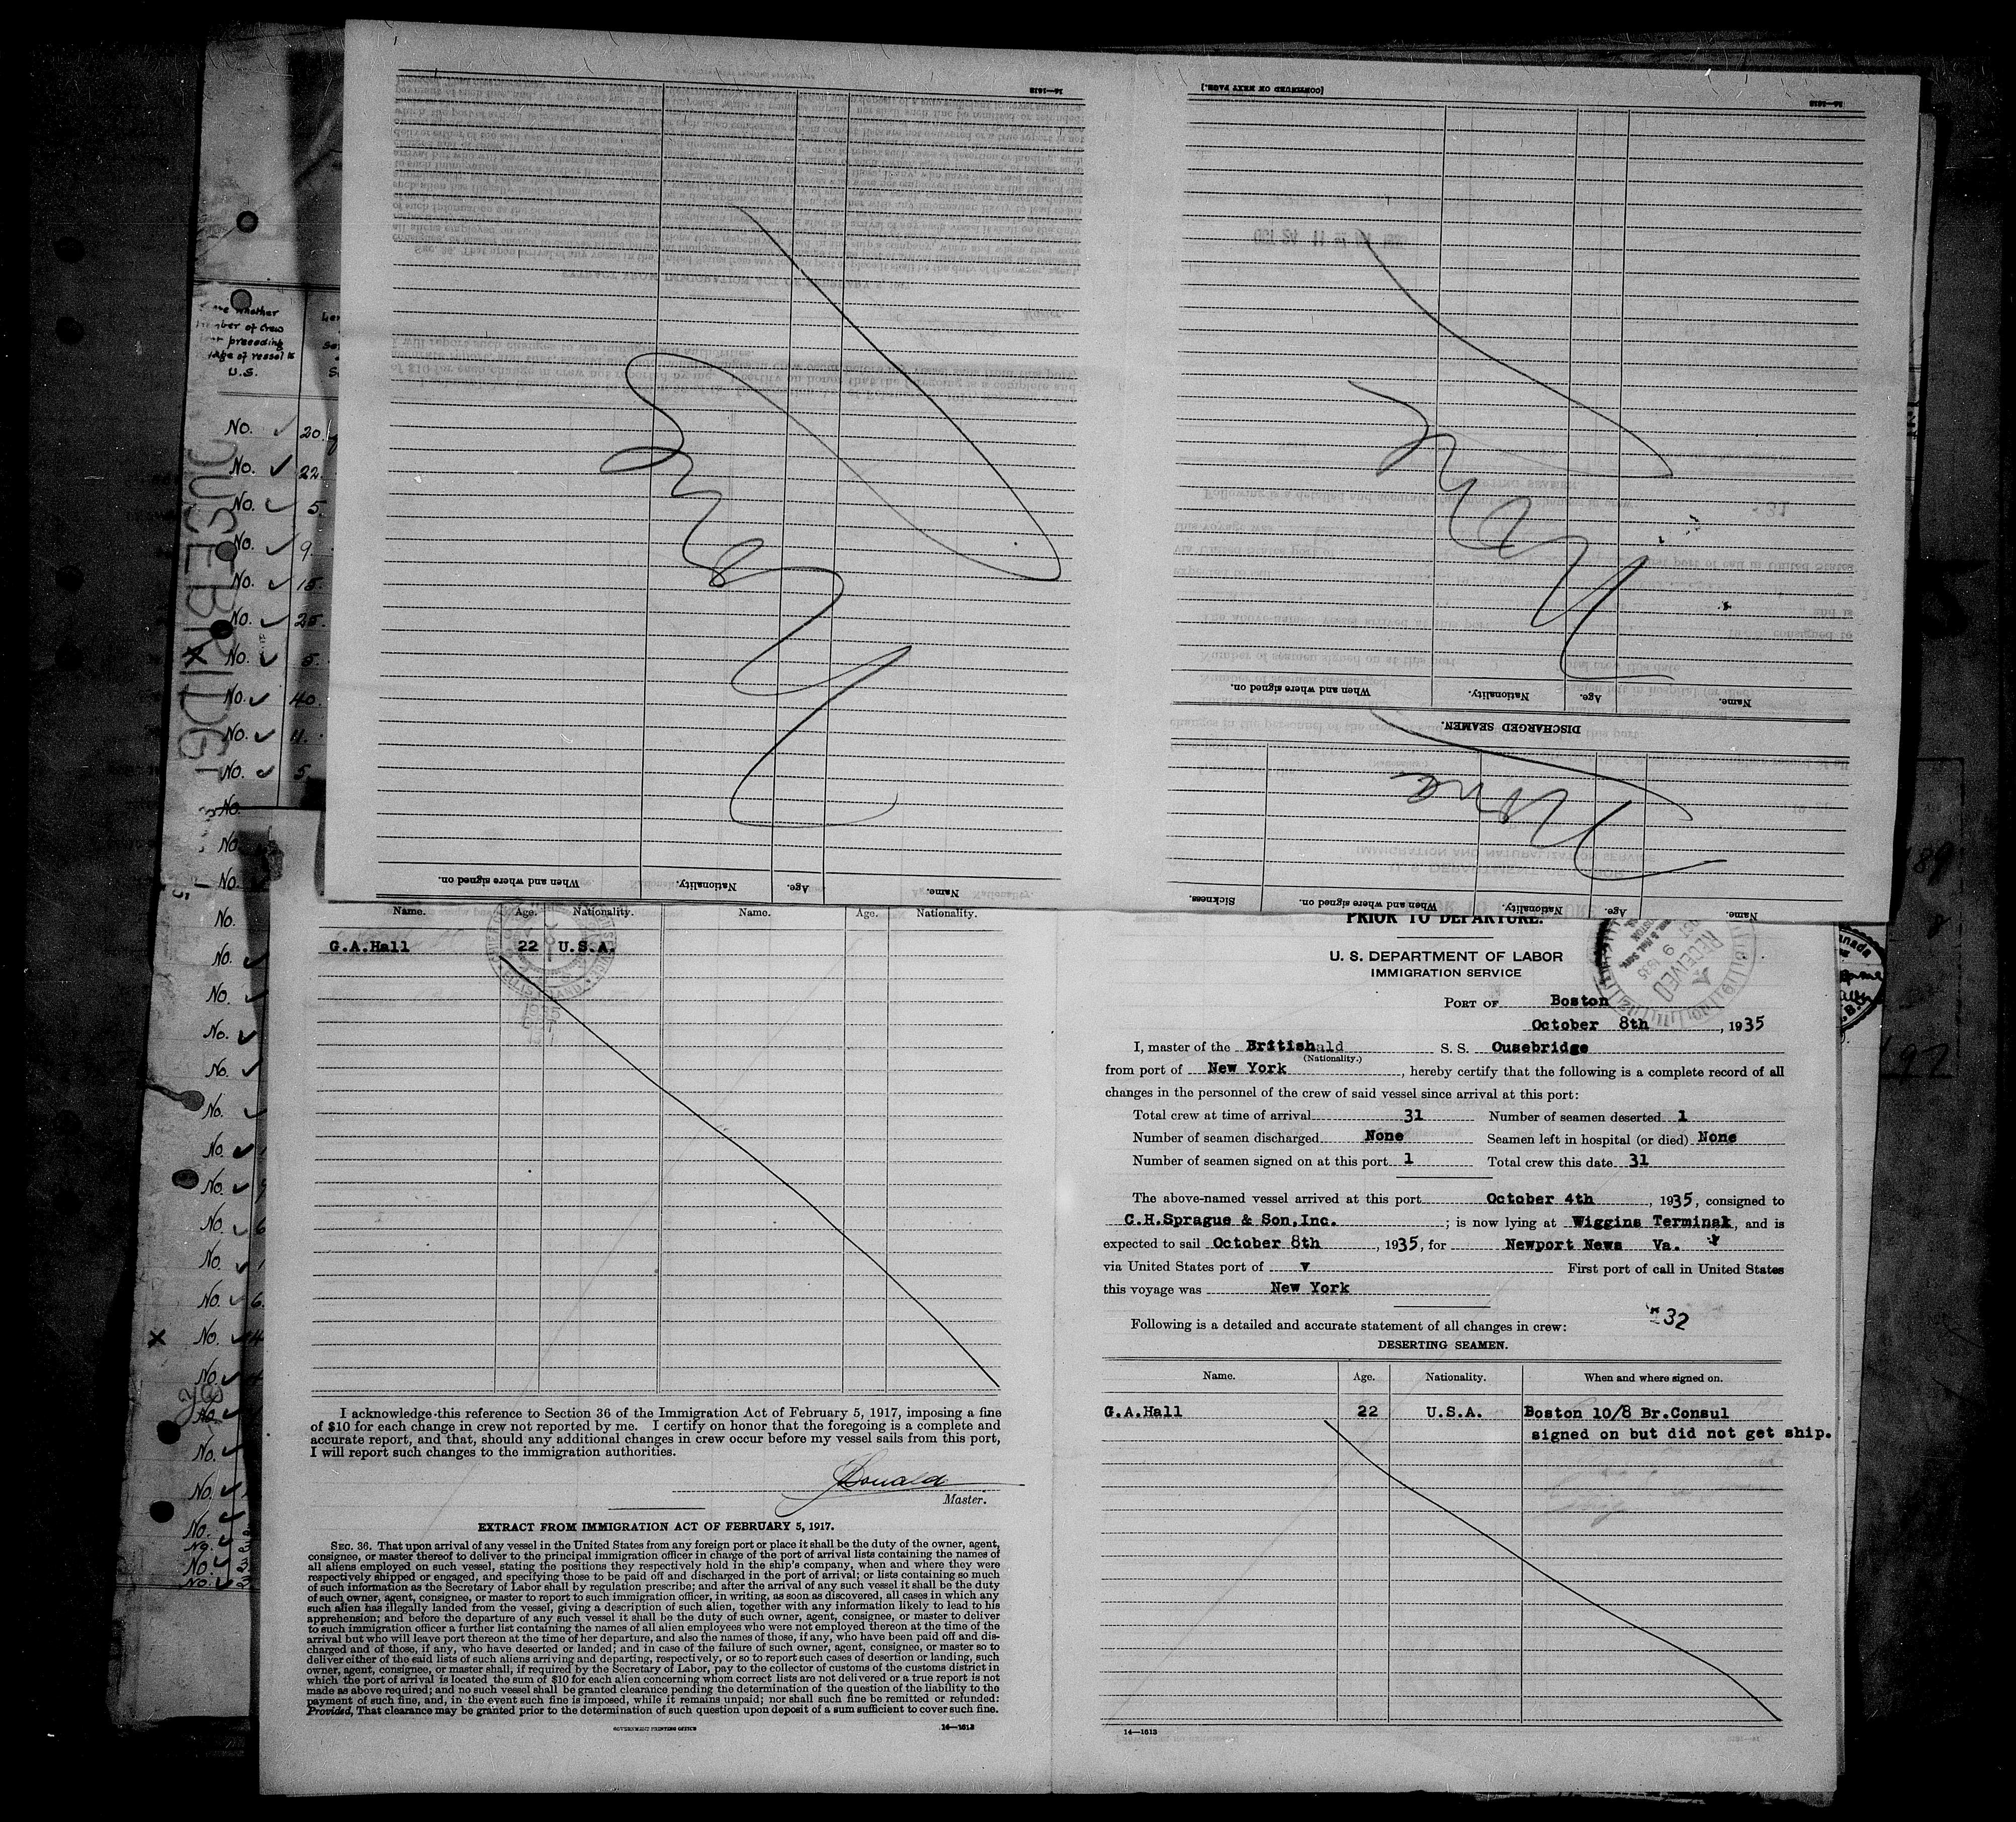 [CONTINUED ON NEXT PAGE.]
14—1613
14—1613
When and where signed on.
Nationality.
Age.
Name.
DISCHARGED SEAMEN.
None
When and where signed on.
Nationality.
Age.
Name.
Sickness.
When and where signed on.
Nationality.
Age.
Name.
whether
member of crew
preceding
voyage of vessel to
U.S.
No. 20.
No. 22.
No. 5.
No. 9.
No. 15.
No. 25.
No. 5.
No. 40.
No. 11.
No. 5.
No.
No.
No.
No.
No.
No.
No.
No.
No.
No.
No.
No. 6
No.
No. 6.
No.
No.
No.
No.
No.
No.
OUSEBRIDGE
Name. Age. Nationality. Name. Age. Nationality.
G.A.Hall 22 U.S.A.
I acknowledge this reference to Section 36 of the Immigration Act of February 5, 1917, imposing a fine
of $10 for each change in crew not reported by me. I certify on honor that the foregoing is a complete and
accurate report, and that, should any additional changes in crew occur before my vessel sails from this port,
I will report such changes to the immigration authorities.
Donald
Master.
EXTRACT FROM IMMIGRATION ACT OF FEBRUARY 5, 1917.
SEC. 36. That upon arrival of any vessel in the United States from any foreign port or place it shall be the duty of the owner, agent,
consignee, or master thereof to deliver to the principal immigration officer in charge of the port of arrival lists containing the names of
all aliens employed on such vessel, stating the positions they respectively hold in the ship's company, when and where they were
respectively shipped or engaged, and specifying those to be paid off and discharged in the port of arrival; or lists containing so much
of such information as the Secretary of Labor shall by regulation prescribe; and after the arrival of any such vessel it shall be the duty
of such owner, agent, consignee, or master to report to such immigration officer, in writing, as soon as discovered, all cases in which any
such alien has illegally landed from the vessel, giving a description of such alien, together with any information likely to lead to his
apprehension; and before the departure of any such vessel it shall be the duty of such owner, agent, consignee, or master to deliver
to such immigration officer a further list containing the names of all alien employees who were not employed thereon at the time of the
arrival but who will leave port thereon at the time of her departure, and also the names of those, if any, who have been paid off and dis-
charged and of those, if any, who have deserted or landed; and in case of the failure of such owner, agent, consignee, or master so to
deliver either of the said lists of such aliens arriving and departing, respectively, or so to report such cases of desertion or landing, such
owner, agent, consignee, or master shall, if required by the Secretary of Labor, pay to the collector of customs of the customs district in
which the port of arrival is located the sum of $10 for each alien concerning whom correct lists are not delivered or a true report is not
made as above required; and no such vessel shall be granted clearance pending the determination of the question of the liability to the
payment of such fine, and, in the event such fine is imposed, while it remains unpaid; nor shall such fine be remitted or refunded:
Provided, That clearance may be granted prior to the determination of such question upon deposit of a sum sufficient to cover such fine.
GOVERNMENT PRINTING OFFICE 14—1613
PRIOR TO DEPARTURE.
U. S. DEPARTMENT OF LABOR
IMMIGRATION SERVICE
RECEIVED
9 1935
PORT OF Boston
October 8th, 1935
I, master of the British S. S. Ousebridge
(Nationality.)
from port of New York, hereby certify that the following is a complete record of all
changes in the personnel of the crew of said vessel since arrival at this port:
Total crew at time of arrival 31 Number of seamen deserted 1
Number of seamen discharged None Seamen left in hospital (or died) None
Number of seamen signed on at this port 1 Total crew this date 31
The above-named vessel arrived at this port October 4th, 1935, consigned to
C.H.Sprague & Son,Inc.; is now lying at Wiggins Terminal, and is
expected to sail October 8th, 1935, for Newport News Va.
via United States port of v First port of call in United States
this voyage was New York
32
Following is a detailed and accurate statement of all changes in crew:
DESERTING SEAMEN.
Name. Age. Nationality. When and where signed on.
G.A.Hall 22 U.S.A. Boston 10/8 Br.Consul
signed on but did not get ship.
14—1613